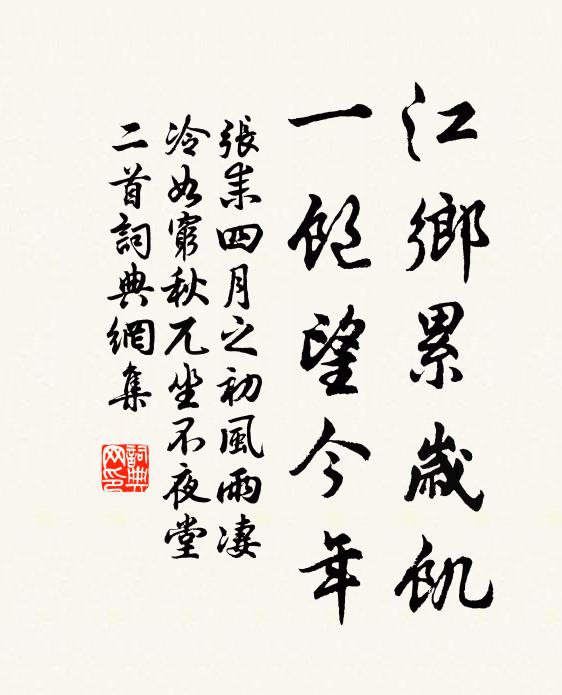 江鄉累歲飢
一飽望今年
張耒四月之初風雨凄
冷如窮秋兀坐不夜堂
二首詞典網集
詞典网印